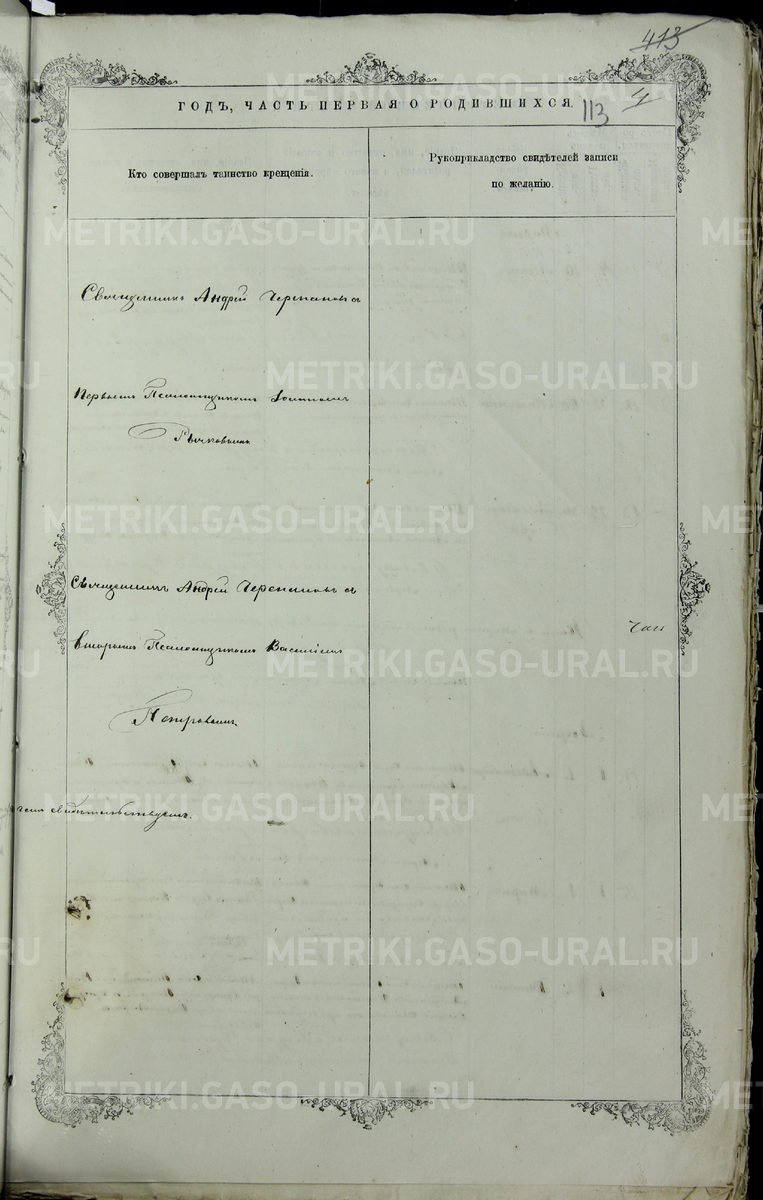 413
4
ГОДЪ, ЧАСТЬ ПЕРВАЯ О РОДИВШИХСЯ.
113
Кто совершалъ таинство крещенія.
Рукоприкладство свидѣтелей записи
по желанію.
Священникъ Андрей Черепановъ съ
Первымъ Псаломщикомъ Іоанномъ
Рычковымъ
Священникъ Андрей Черепановъ съ
Вторымъ Псаломщикомъ Василіемъ
Петровымъ
свидѣтельствуемъ.
METRIKI.GASO-URAL.RU